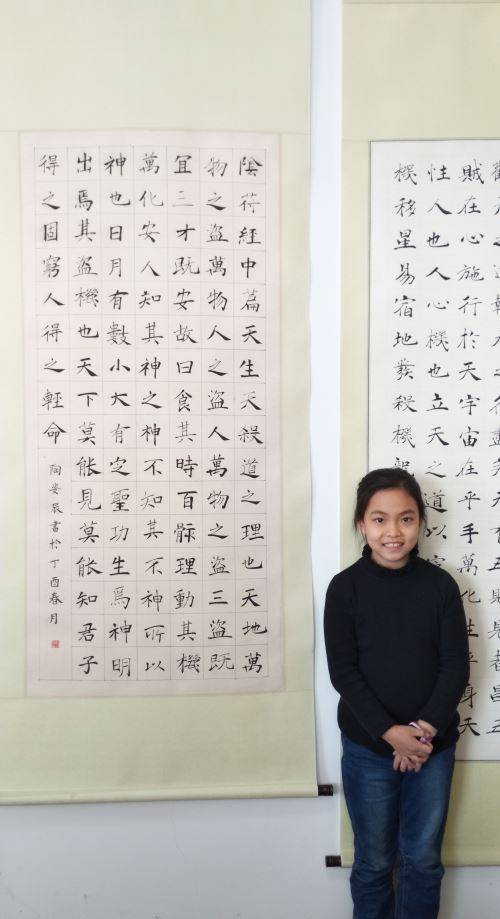 陰符經中篇天生天殺道之理也天地萬
物之盜萬物人之盜人萬物之盜三盜既
宜三才既安故曰食其時百骸理動其機
萬化安人知其神之神不知其不神所以
神也日月有數小大有定聖功生焉神明
出焉其盜機也天下莫能見莫能知君子
得之固窮人得之輕命
陶辰書於丁酉春月
賊在心施行於天宇宙在乎手萬化生乎身天
性人也人心機也立天之道以
機移星易宿地發殺機